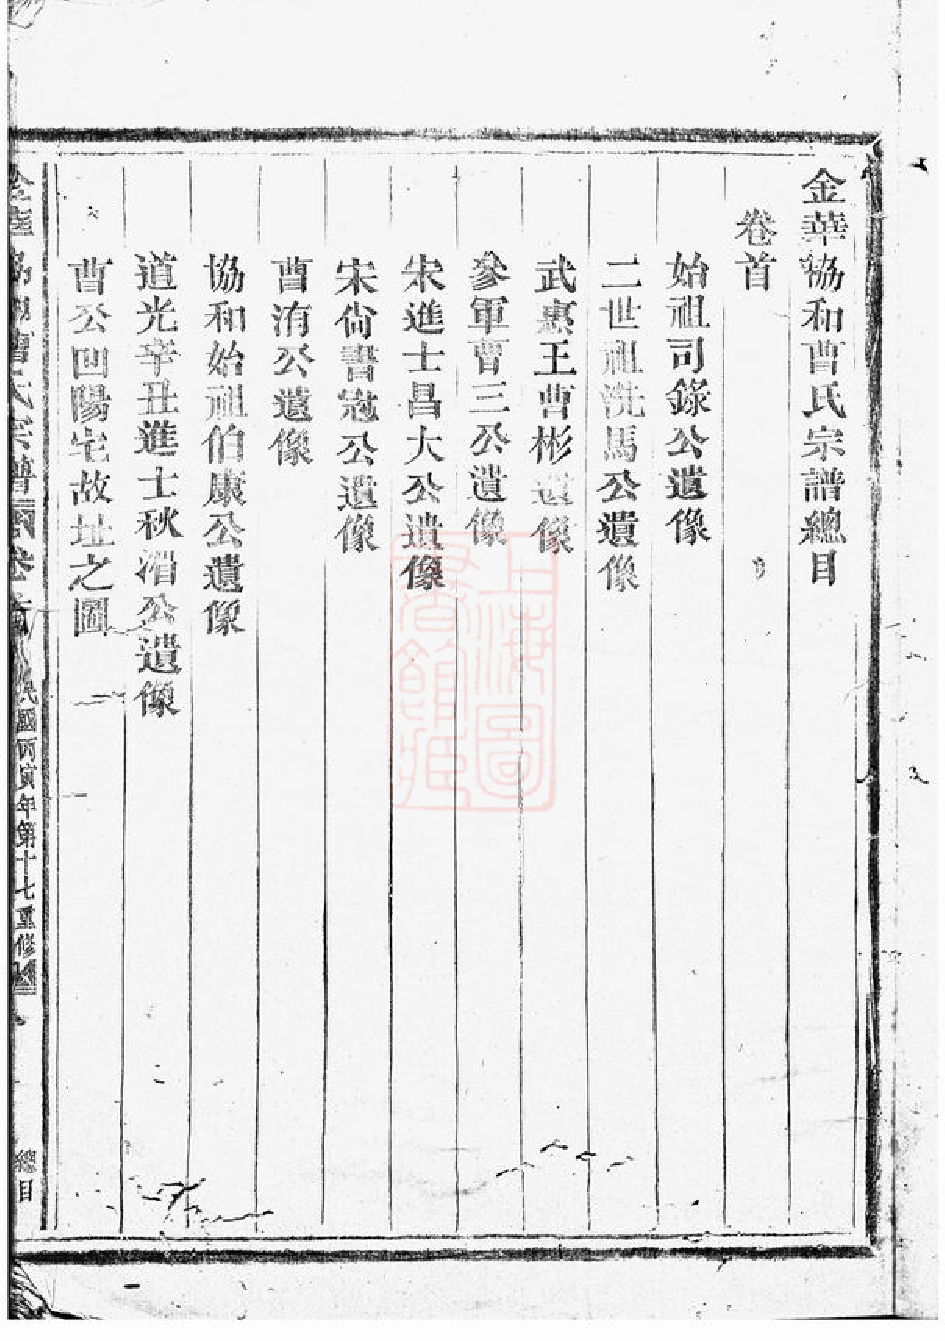 金華協和曹氏宗譜總目
卷首
始祖司錄公遺像
二世祖洗馬公遺像
武惠王曹彬遺像
參軍曹三公遺像
宋進士昌大公遺像
宋尙書冠公遺像
曹洧公遺像
協和始祖伯康公遺像
道光辛丑進士秋湄公遺像
曹公凹陽宅故址之圖
金華協和曹氏宗譜 卷首 民國丙寅年第十七重修 總目
上海圖書館藏